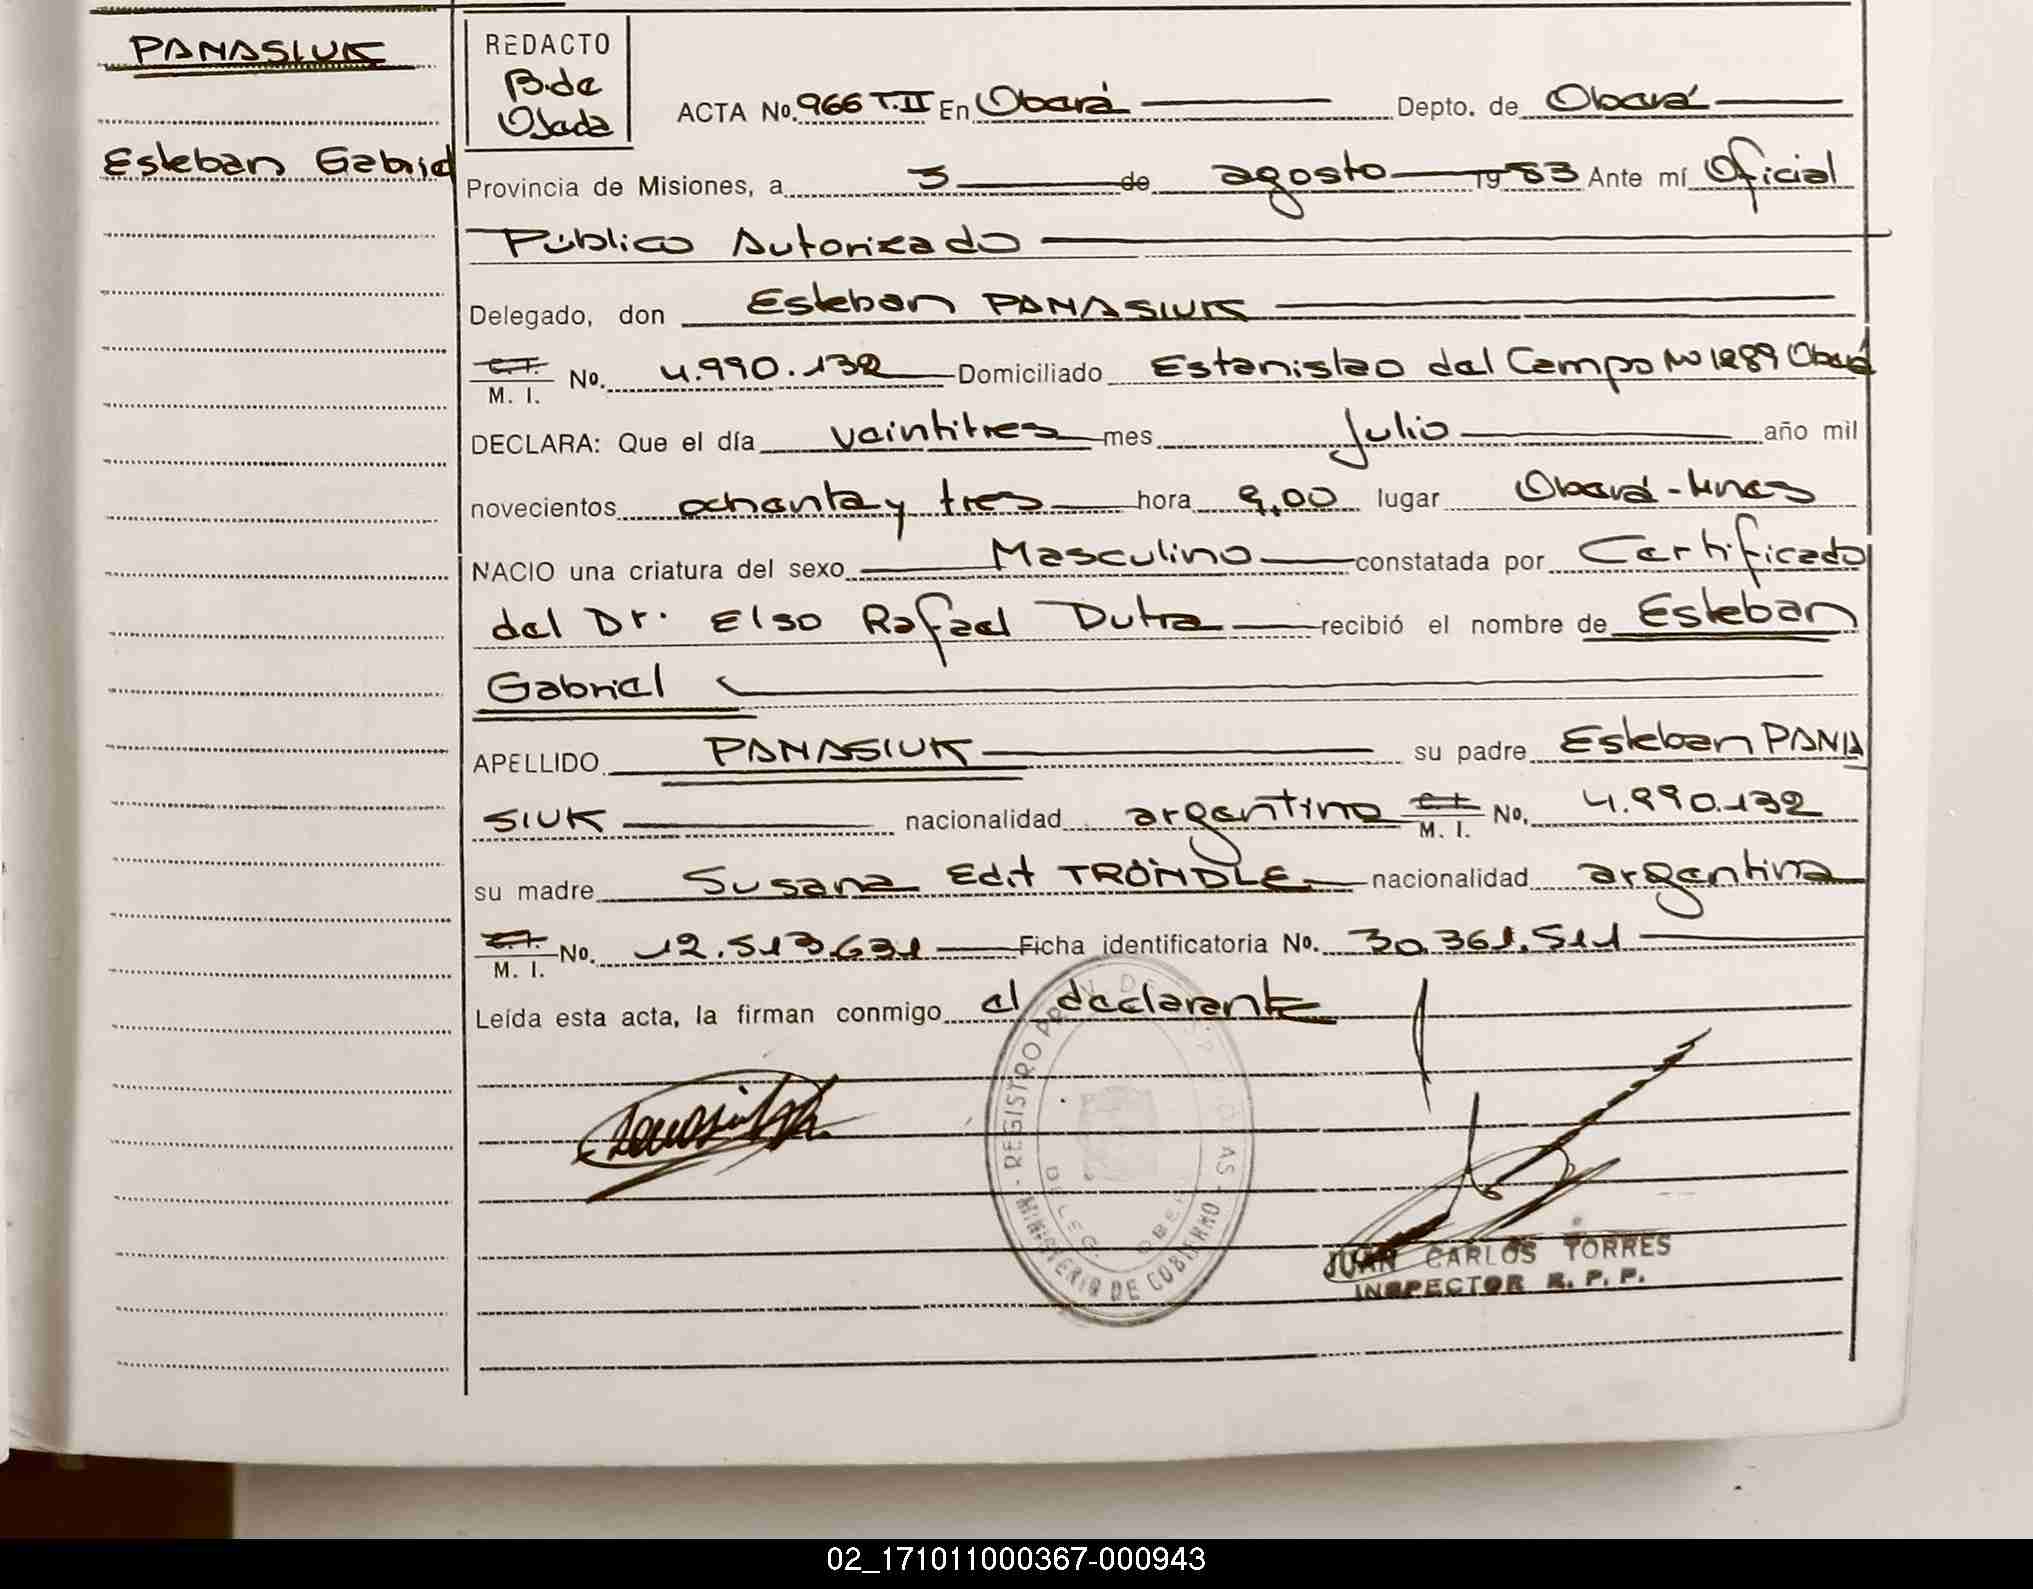 PANASIUK
Esteban Gabriel
REDACTO
B. de
Ojeda
ACTA No. 966 T. II En Oberá Depto. de Oberá
Provincia de Misiones, a 3 de agosto 1983 Ante mí Oficial
Público Autorizado
Delegado, don Esteban PANASIUK
C.I.
M. I. No. 4.990.132 Domiciliado Estanislao del Campo No 1289 Oberá
DECLARA: Que el día veintitres mes Julio año mil
novecientos ochenta y tres hora 9,00 lugar Oberá - Mnes
NACIO una criatura del sexo Masculino constatada por Certificado
del Dr. Elso Rafael Dutra recibió el nombre de Esteban
Gabriel
APELLIDO PANASIUK su padre Esteban PANA
SIUK nacionalidad argentino C.I. M. I. No. 4.990.132
su madre Susana Edit TRÖNDLE nacionalidad argentina
C.I.
M. I. No. 12.513.631 Ficha identificatoria No. 30.361.511
Leída esta acta, la firman conmigo el declarante
REGISTRO PROV. DE LAS
DELEG. OBERÁ
MINISTERIO DE GOBIERNO
JUAN CARLOS TORRES
INSPECTOR R. P. P.
02_171011000367-000943